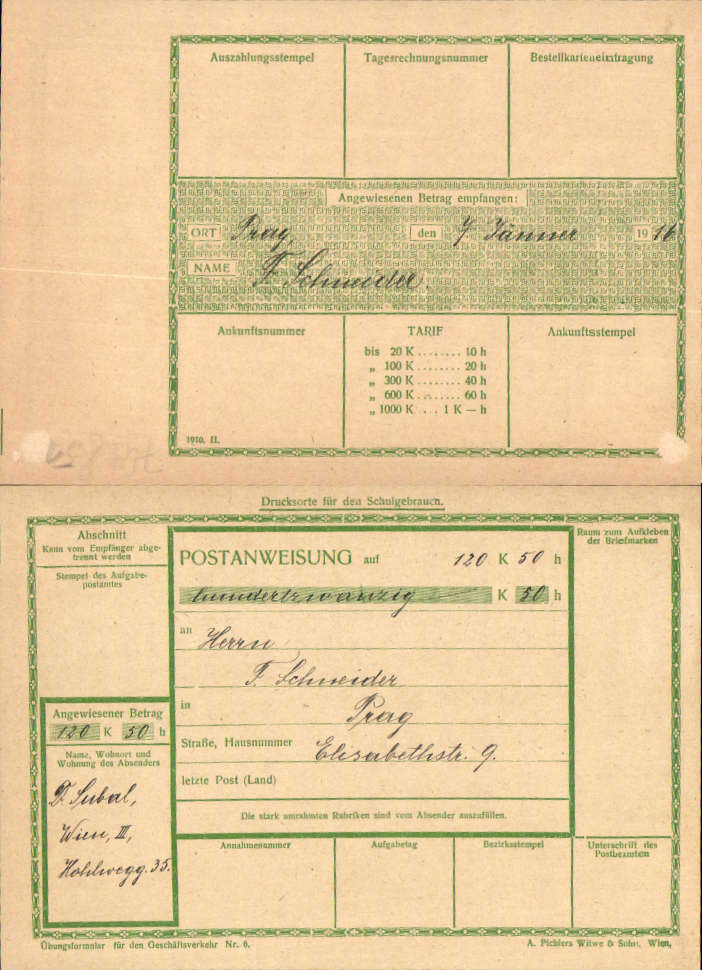 Auszahlungsstempel Tagesrechnungsnummer Bestellkarteneintragung
Angewiesenen Betrag empfangen:
ORT Prag den 7 Jänner 19 16
NAME F. Schneider.
Ankunftsnummer TARIF Ankunftsstempel
bis 20 K ........ 10 h
„ 100 K ........ 20 h
„ 300 K ........ 40 h
„ 600 K ........ 60 h
„ 1000 K ... 1 K — h
1910. II.
Drucksorte für den Schulgebrauch.
Abschnitt
Kann vom Empfänger abge-
trennt werden
Stempel des Aufgabe-
postamtes
Angewiesener Betrag
120 K 50 h
Name, Wohnort und
Wohnung des Absenders
D. Subal,
Wien, III,
Hohlwegg. 35.
POSTANWEISUNG auf 120 K 50 h
hundertzwanzig K 50 h
an Herrn
F. Schneider
in Prag
Straße, Hausnummer Elisabethstr. 9.
letzte Post (Land)
Die stark umrahmten Rubriken sind vom Absender auszufüllen.
Raum zum Aufkleben
der Briefmarken
Annahmenummer Aufgabetag Bezirksstempel
Unterschrift des
Postbeamten
Übungsformular für den Geschäftsverkehr Nr. 6. A. Pichlers Witwe & Sohn, Wien,